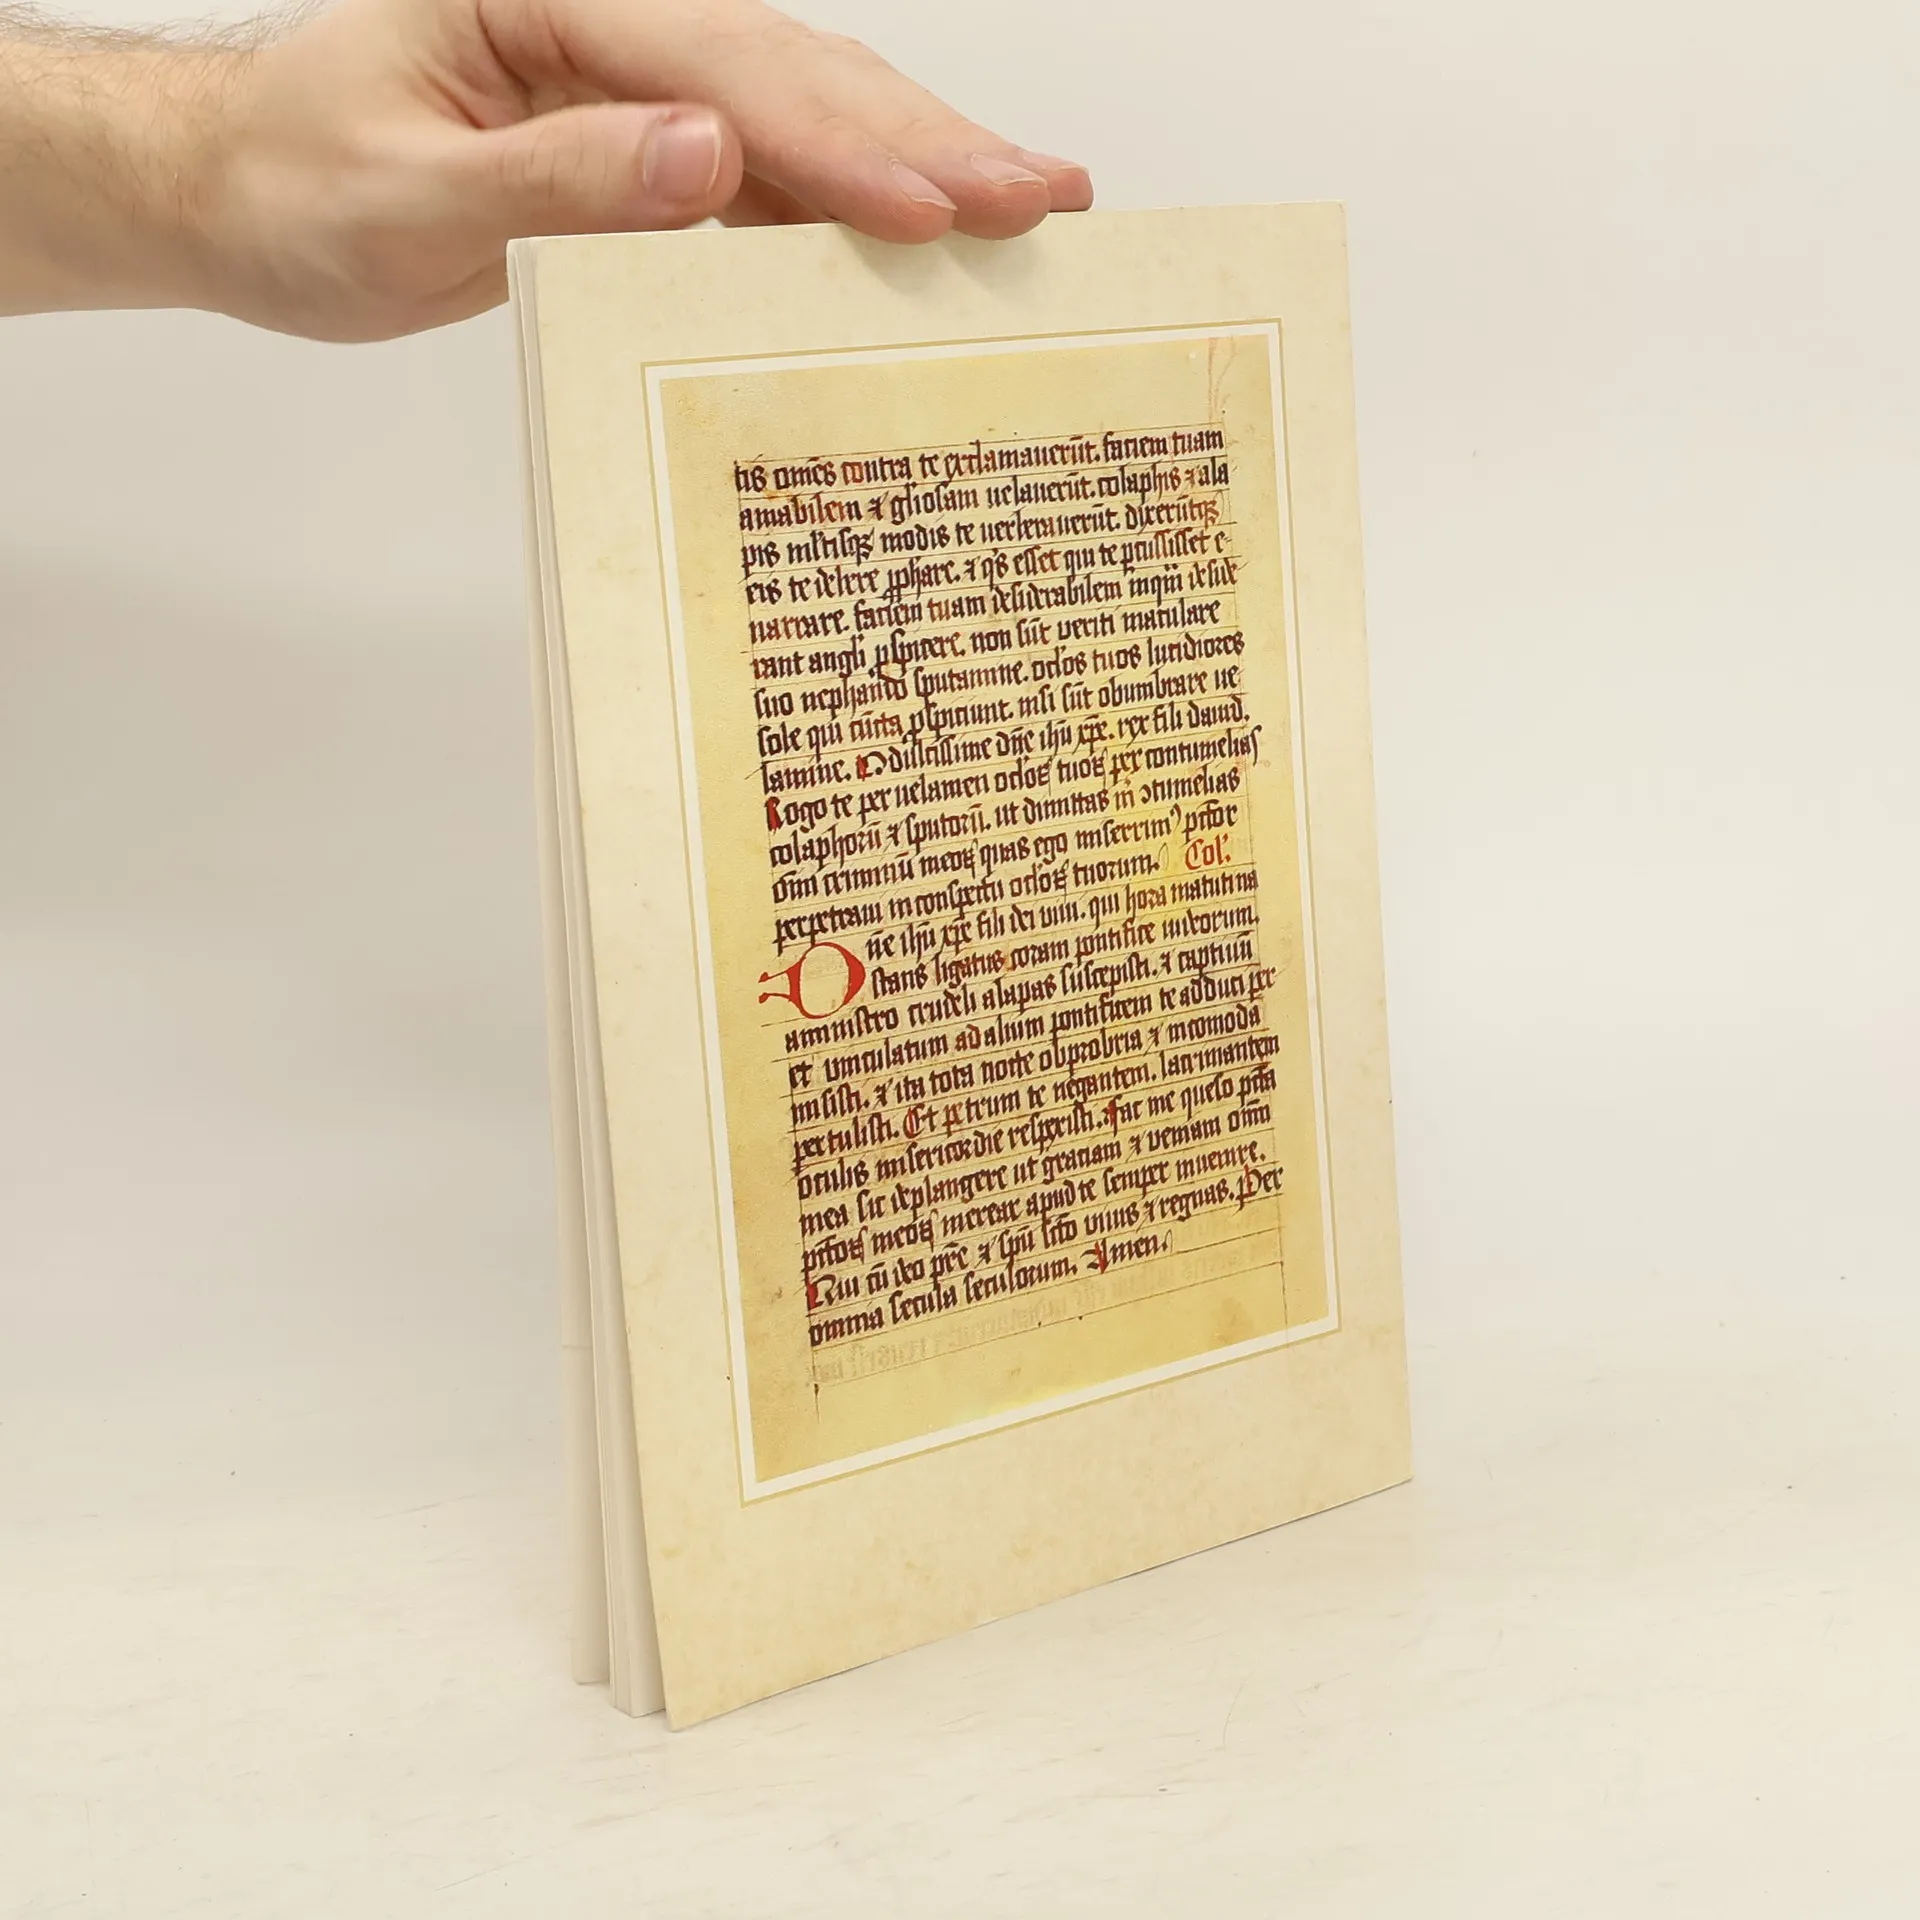 tis om̄es contra te exclamauerūt. faciem tuam
amabilem ⁊ gl'iosam uelauerūt. colaphis ⁊ ala
pis ml'tisqꝫ modis te uerberauerūt. dixerūtqꝫ
eis te debere ꝓphare. ⁊ q's esset qui te ꝑcussisset e-
narrare. faciem tuam desiderabilem inquā deside
rant angl'i ꝑspicere. non sūt ueriti maculare
suo nephando sputamine. ocl'os tuos lucidiores
sole qui cūcta ꝑspiciunt. nisi sūt obumbrare ue
lamine. O dulcissime dn̄e ihū xp̄e. rex fili dauid.
Rogo te per uelamen ocl'oꝝ tuoꝝ per contumelias
colaphorū ⁊ sputorū. ut dimittas m̄ ꝯtumelias
om̄ criminū meoꝝ quas ego miserrim' pc̄tor
perpetraui in conspectu ocl'oꝝ tuorum. Col'.
Dn̄e ihū xp̄e fili dei uiui. qui hora matutina
stans ligatus coram pontifice iudeorum.
a ministro crudeli alapas suscepisti. ⁊ captiuū
et uinculatum ad alium pontificem te adduci per
misisti. ⁊ ita tota nocte obprobria ⁊ incomoda
pertulisti. Et petrum te negantem. lacrimantem
oculis misericordie respexisti. Fac me queso pc̄ta
mea sic deplangere ut graciam ⁊ ueniam om̄i
pc̄toꝝ meoꝝ merear apud te semper inuenire.
Qui cū deo pr̄e ⁊ sp̄u sc̄o uiuis ⁊ regnas. Per
omnia secula seculorum. Amen.